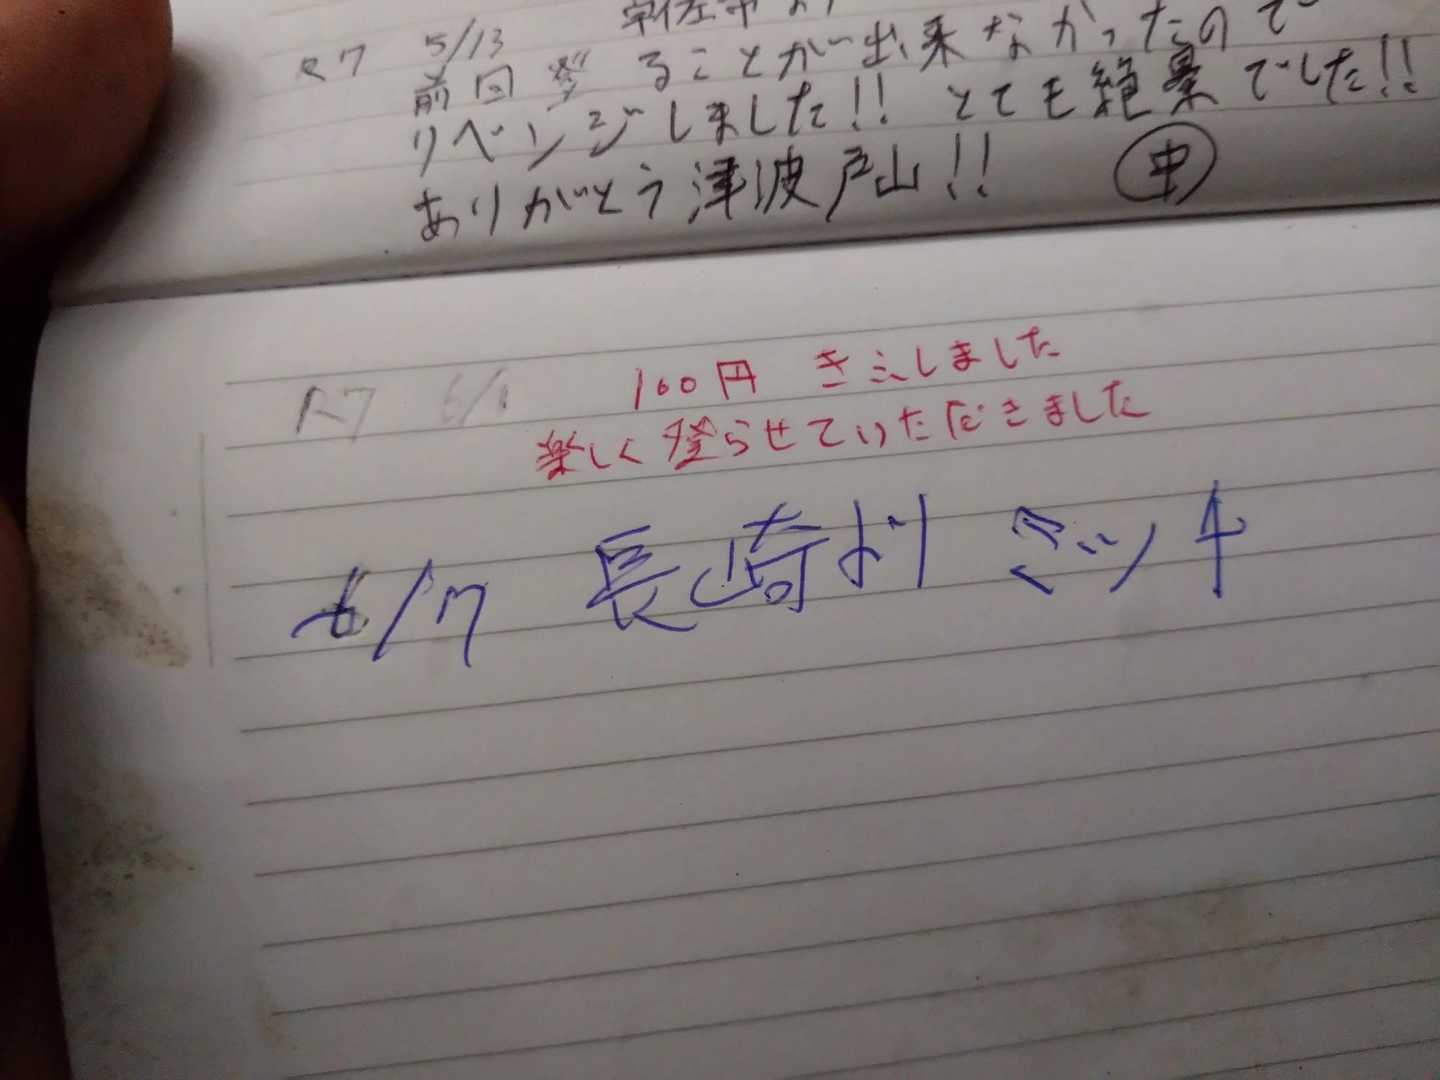 R7 5/13 宇佐市より
前回登ることが出来なかったので
リベンジしました!! とても絶景でした!!
ありがとう津波戸山!! 中
R7 6/1 100円 きふしました
楽しく登らせていただきました
6/7 長崎より ミツキ